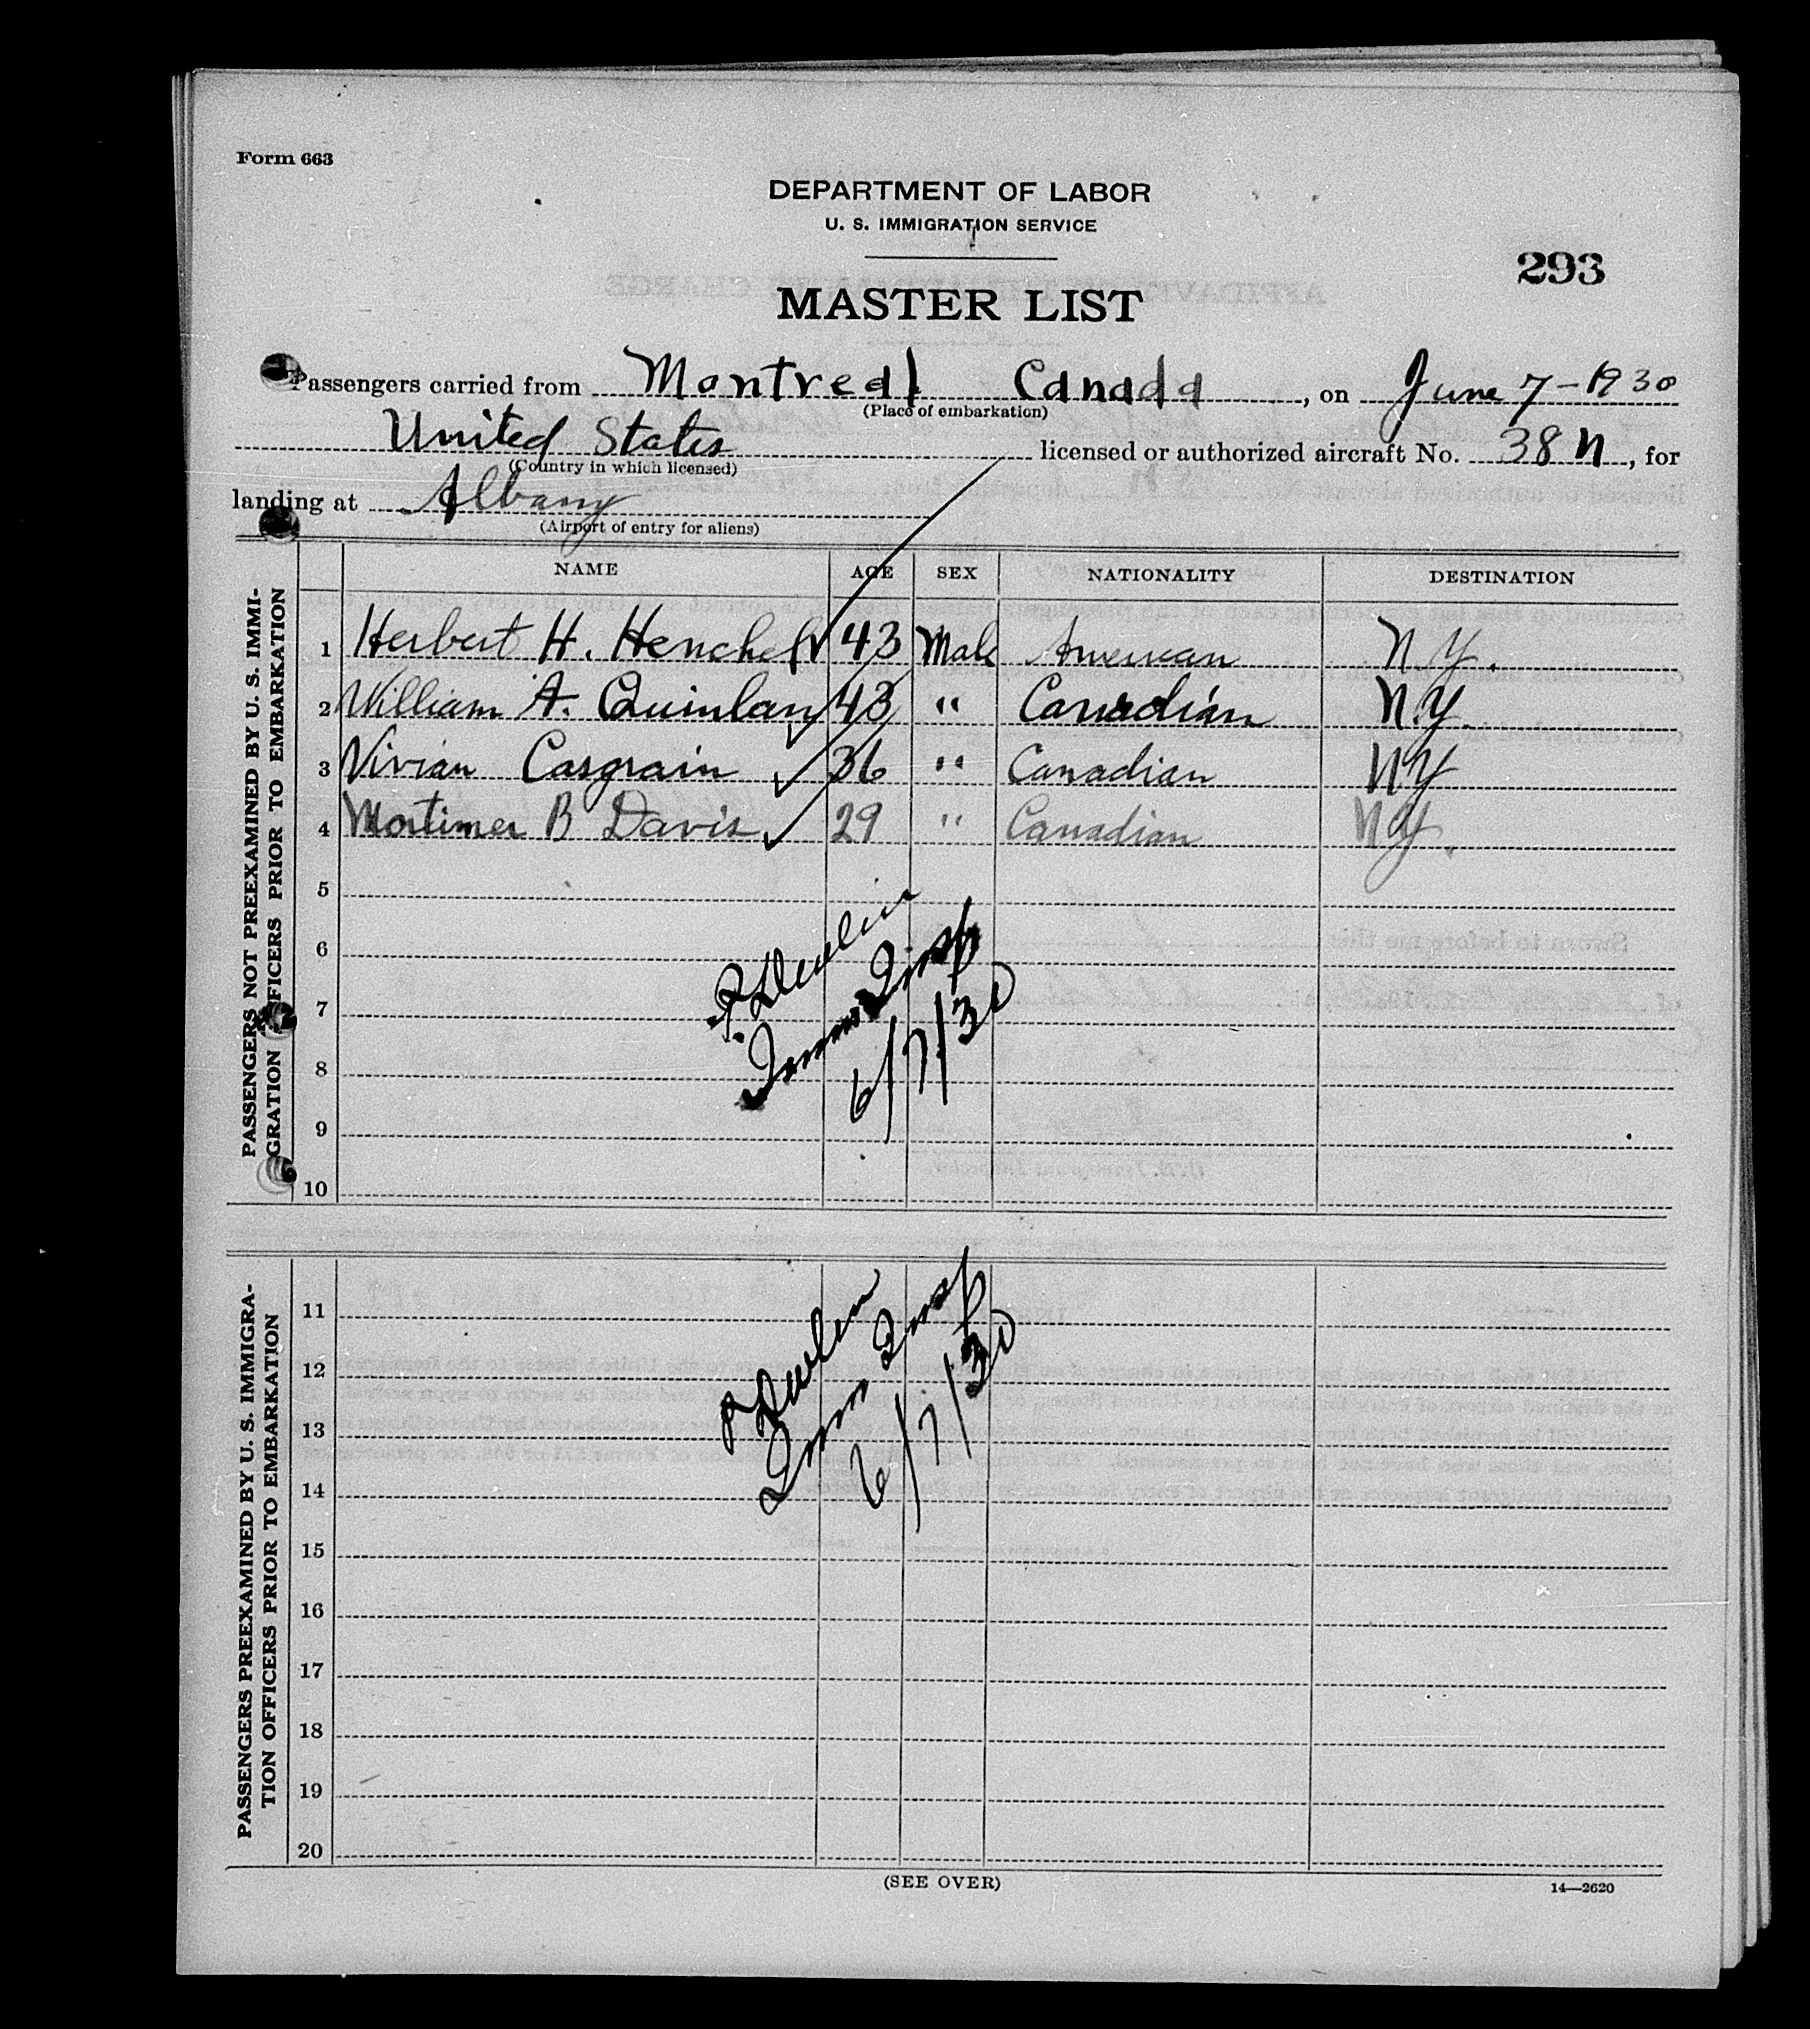 Form 663
DEPARTMENT OF LABOR
U. S. IMMIGRATION SERVICE
293
MASTER LIST
Passengers carried from Montreal Canada, on June 7-1930
(Place of embarkation)
United States licensed or authorized aircraft No. 38 N, for
(Country in which licensed)
landing at Albany
(Airport of entry for aliens)
NAME AGE SEX NATIONALITY DESTINATION
PASSENGERS NOT PREEXAMINED BY U. S. IMMI-
GRATION OFFICERS PRIOR TO EMBARKATION
1 Herbert H. 43 Male American N.Y.
2 William A. Quinlan 43 " Canadian N.Y.
3 Vivian Casgrain 36 " Canadian NY
4 Mortimer B Davis 29 " Canadian NY.
5
6
7
8
9
10
Devlin
Imm Insp
6/7/30
PASSENGERS PREEXAMINED BY U. S. IMMIGRA-
TION OFFICERS PRIOR TO EMBARKATION
11
12
13
14
15
16
17
18
19
20
Devlin
Imm Insp
6/7/30
(SEE OVER)
14—2620